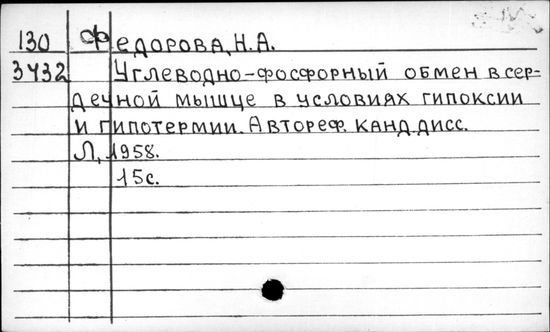 130 Федорова, Н.А.
3432 Углеводно-фосфорный обмен в сер-
дечной мышце в условиях гипоксии
и гипотермии. Автореф. канд. дисс.
Л., 1958.
15с.